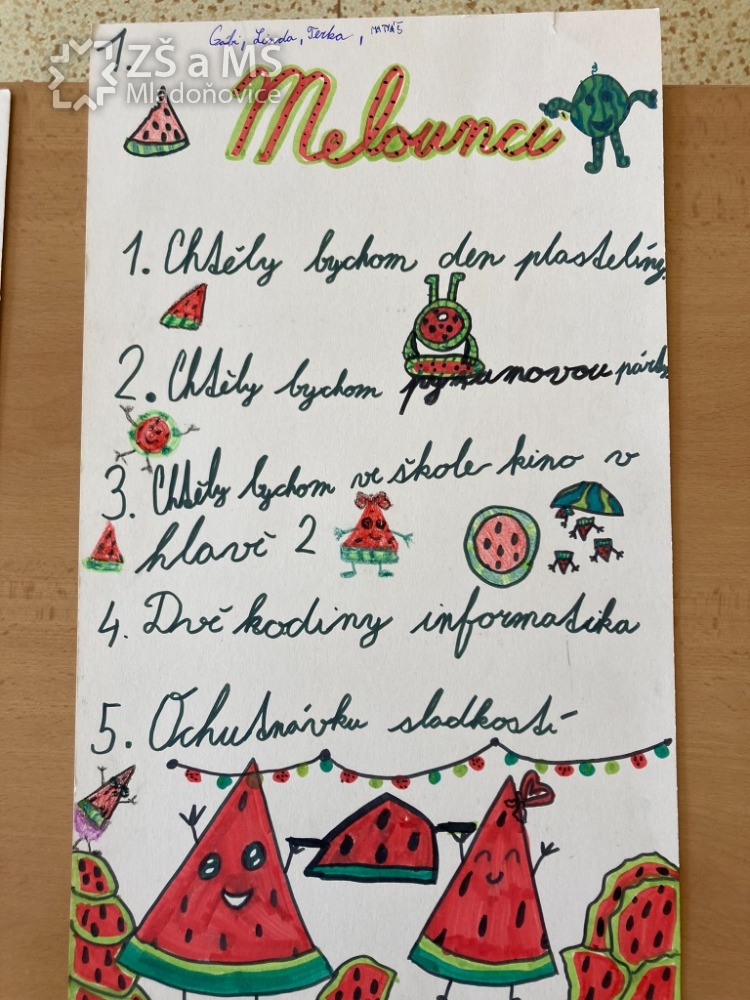 1.
Gabi, Linda, Terka, MATYÁŠ
ZŠ a MŠ
Mladoňovice
Melounci
1. Chtěly bychom den plastelíny.
2. Chtěly bychom pyžamovou párty
3. Chtěly bychom ve škole kino v
hlavě 2
4. Dvě hodiny informatika
5. Ochutnávku sladkostí